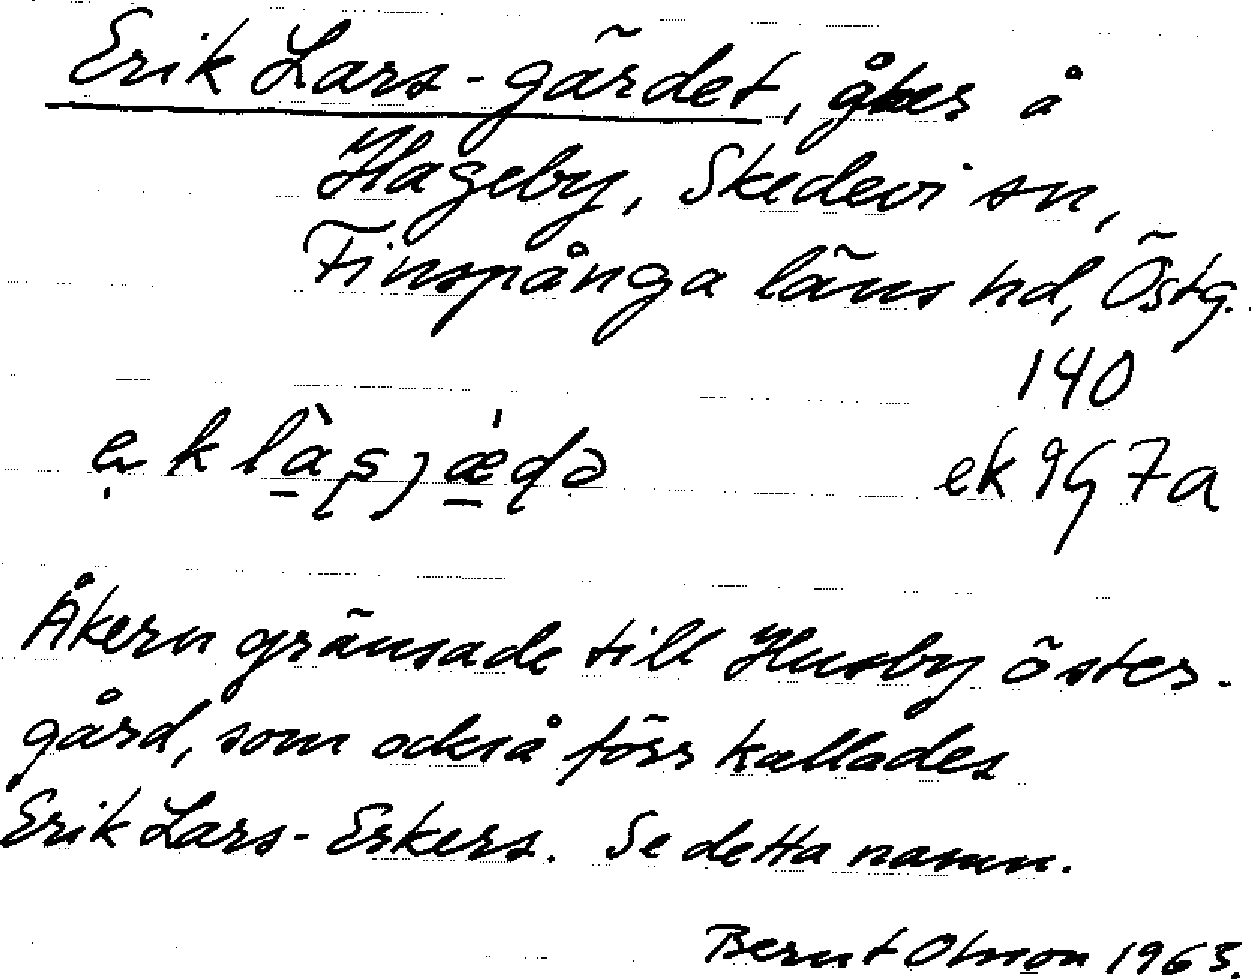 Erik Lars-gärdet, åker å
Hageby, Skedevi sn,
Finspånga läns hd, Östg.
140
ek 9G 7a
Åkern gränsade till Husby öster-
gård, som också förr kallades
Erik Lars-Erkers. Se detta namn.
Bernt Olsson 1963.